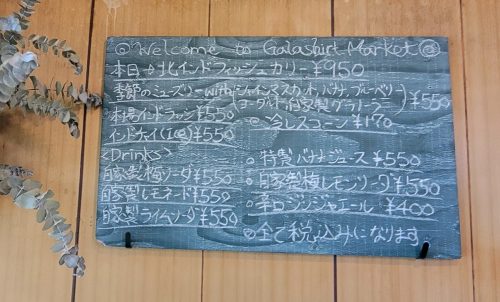 ◎ Welcome to Galashirt Market ◎
本日の北インドフィッシュカリー ¥950
季節のミューズリー with (シャインマスカット、バナナ、ブルーベリー
ヨーダルト自家製グラノーラ) ¥550
本場インドラッシー ¥550
○ 今レスコーン ¥170
インドチャイ ¥550
<Drinks>
○ 特製バナナジュース ¥550
自家製梅ソーダ ¥550
○ 自家製梅レモンソーダ ¥550
自家製レモネード ¥550
○ 辛口ジンジャエール ¥400
自家製ライムソーダ ¥550
○ 全て税込みになります